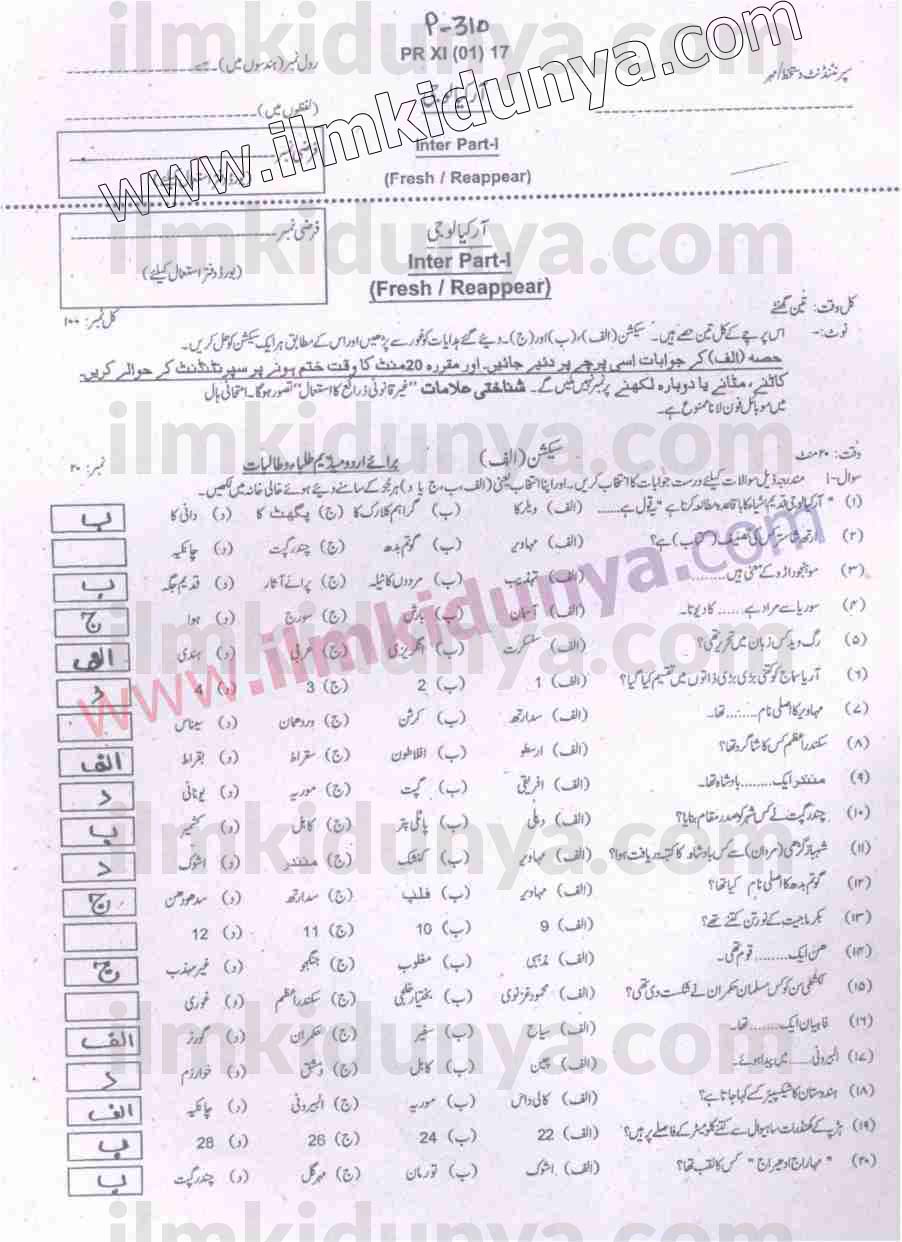 P-310
PR XI (01) 17
رول نمبر (ہندسوں میں)
سپرنٹنڈنٹ دستخط/مہر
آرکیالوجی
(لفظوں میں)
Inter Part-I
فرضی نمبر
(Fresh / Reappear)
(بورڈ دفتر استعمال کیلئے)
آرکیالوجی
فرضی نمبر
Inter Part-I
(بورڈ دفتر استعمال کیلئے)
(Fresh / Reappear)
کل وقت: تین گھنٹے
کل نمبر: ۱۰۰
نوٹ:- اس پرچے کے کل تین حصے ہیں۔ سیکشن (الف)، (ب) اور (ج)۔ دیئے گئے ہدایات کو غور سے پڑھیں اور اس کے مطابق ہر ایک سیکشن کو حل کریں۔
حصہ (الف) کے جوابات اسی پرچے پر دئیے جائیں۔ اور مقررہ 20 منٹ کا وقت ختم ہونے پر سپرنٹنڈنٹ کے حوالے کریں۔
کاٹنے، مٹانے یا دوبارہ لکھنے پر نمبر نہیں ملیں گے۔ شناختی علامات "غیر قانونی ذرائع کا استعمال" تصور ہوگا۔ امتحانی ہال
میں موبائل فون لانا ممنوع ہے۔
وقت: ۲۰ منٹ سیکشن (الف) برائے اردو میڈیم طلباء و طالبات نمبر: ۲۰
سوال-۱ مندرجہ ذیل سوالات کیلئے درست جوابات کا انتخاب کریں۔ اور اپنا انتخاب یعنی (الف، ب، ج یا د) ہر جُز کے سامنے دیئے ہوئے خالی خانہ میں لکھیں۔
(۱) "آرکیالوجی قدیم اشیاء کا باقاعدہ مطالعہ کرنا ہے" یہ قول ہے...... (الف) ویلر کا (ب) گراہم کلارک کا (ج) پگھٹ کا (د) دانی کا ب
(۲) ارتھ شاستر کس کی تصنیف (کتاب) ہے؟ (الف) مہاویر (ب) گوتم بدھ (ج) چندر گپت (د) چانکیہ
(۳) موہنجوداڑو کے معنی ہیں......... (الف) تہذیب (ب) مردوں کا ٹیلہ (ج) پرانے آثار (د) قدیم جگہ ب
(۴) سوریا سے مراد ہے ...... کا دیوتا۔ (الف) آسمان (ب) بارش (ج) سورج (د) ہوا ج
(۵) رگ وید کس زبان میں تحریر تھی؟ (الف) سنسکرت (ب) انگریزی (ج) عربی (د) ہندی الف
(۶) آریا سماج کو کتنی بڑی بڑی ذاتوں میں تقسیم کیا گیا؟ (الف) 1 (ب) 2 (ج) 3 (د) 4 د
(۷) مہاویر کا اصلی نام ........ تھا۔ (الف) سدارتھ (ب) کرشن (ج) وردھمان (د) سیناس
(۸) سکندر اعظم کس کا شاگرد تھا؟ (الف) ارسطو (ب) افلاطون (ج) سقراط (د) بقراط الف
(۹) مننندر ایک ........ بادشاہ تھا۔ (الف) افریقی (ب) گپت (ج) موریہ (د) یونانی د
(۱۰) چندر گپت نے کس شہر کو صدر مقام بنایا؟ (الف) دہلی (ب) پاٹلی پتر (ج) کابل (د) کشمیر ب
(۱۱) شہباز گڑھی (مردان) سے کس بادشاہ کا کتبہ دریافت ہوا؟ (الف) مہاویر (ب) کنشک (ج) مننندر (د) اشوک د
(۱۲) گوتم بدھ کا اصلی نام کیا تھا؟ (الف) مہاویر (ب) فلپ (ج) سدارتھ (د) سدھودھن ج
(۱۳) بکرماجیت کے نورتن کتنے تھے؟ (الف) 9 (ب) 10 (ج) 11 (د) 12
(۱۴) ھن ایک ........ قوم تھی۔ (الف) مذہبی (ب) مغلوب (ج) جنگجو (د) غیر مہذب ج
(۱۵) کس مسلمان حکمران نے شکست دی تھی؟ (الف) محمود غزنوی (ب) بختیار خلجی (ج) سکندر اعظم (د) غوری
(۱۶) فاہیان ایک ........ تھا۔ (الف) سیاح (ب) سفیر (ج) حکمران (د) گورنر الف
(۱۷) البیرونی ...... میں پیدا ہوئے۔ (الف) چین (ب) کابل (ج) دمشق (د) خوارزم د
(۱۸) ہندوستان کا شیکسپیئر کسے کہا جاتا ہے؟ (الف) کالی داس (ب) موریہ (ج) البیرونی (د) چانکیہ الف
(۱۹) ہڑپہ کے کھنڈرات ساہیوال سے کتنے کلومیٹر کے فاصلے پر ہیں؟ (الف) 22 (ب) 24 (ج) 26 (د) 28 ب
(۲۰) "مہاراج ادھیراج" کس کا لقب تھا؟ (الف) اشوک (ب) تورمان (ج) مہرگل (د) چندر گپت ب
www.ilmkidunya.com
www.ilmkidunya.com
ilmkidunya.com
ilmkidunya.com
ilmkidunya.com
ilmkidunya.com
ilmkidunya.com
ilmkidunya.com
ilmkidunya.com
ilmkidunya.com